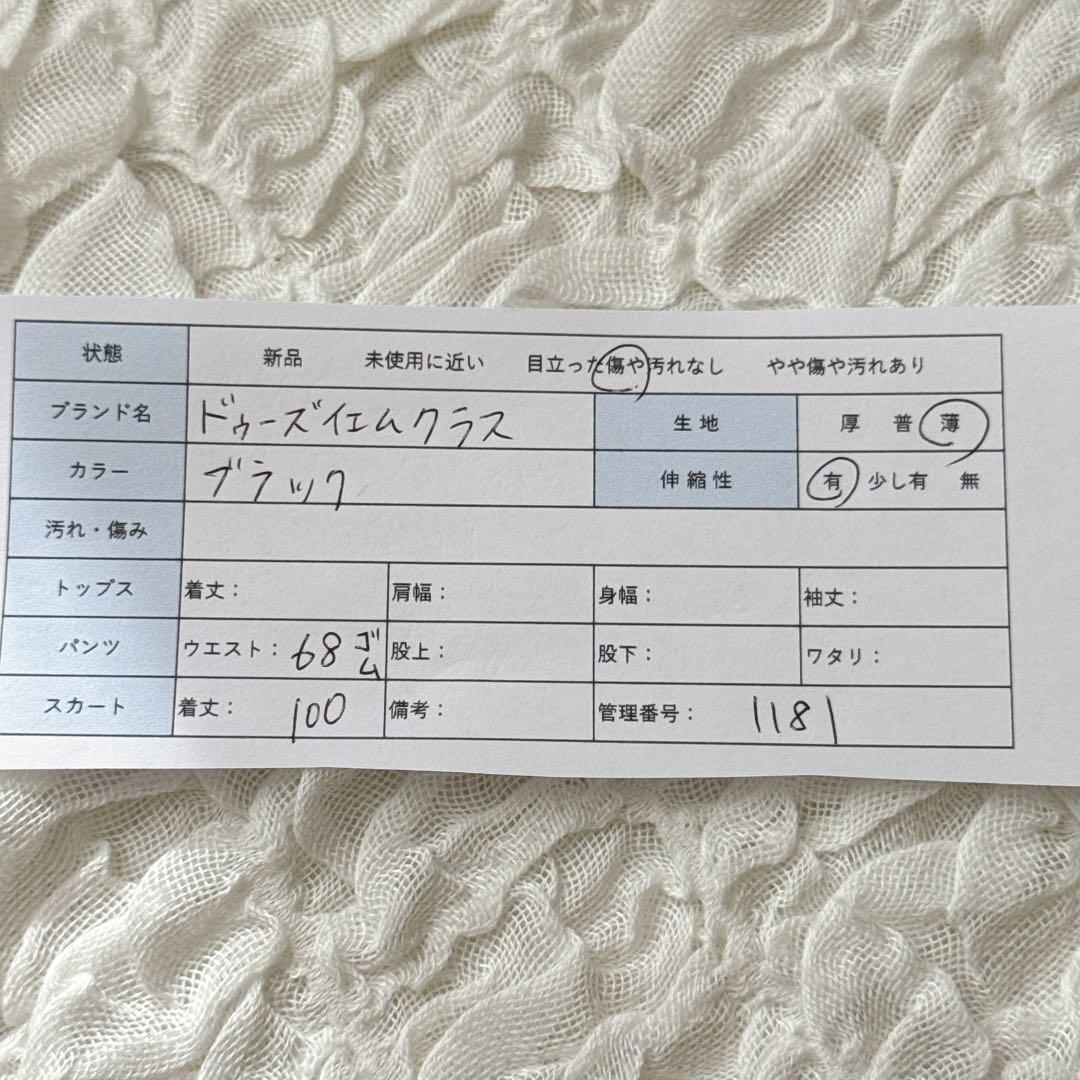 状態 新品 未使用に近い 目立った傷や汚れなし やや傷や汚れあり
ブランド名 ドゥーズイエムクラス 生地 厚 普 薄
カラー ブラック 伸縮性 有 少し有 無
汚れ・傷み
トップス 着丈： 肩幅： 身幅： 袖丈：
パンツ ウエスト： 68 ゴム 股上： 股下： ワタリ：
スカート 着丈： 100 備考： 管理番号： 1181